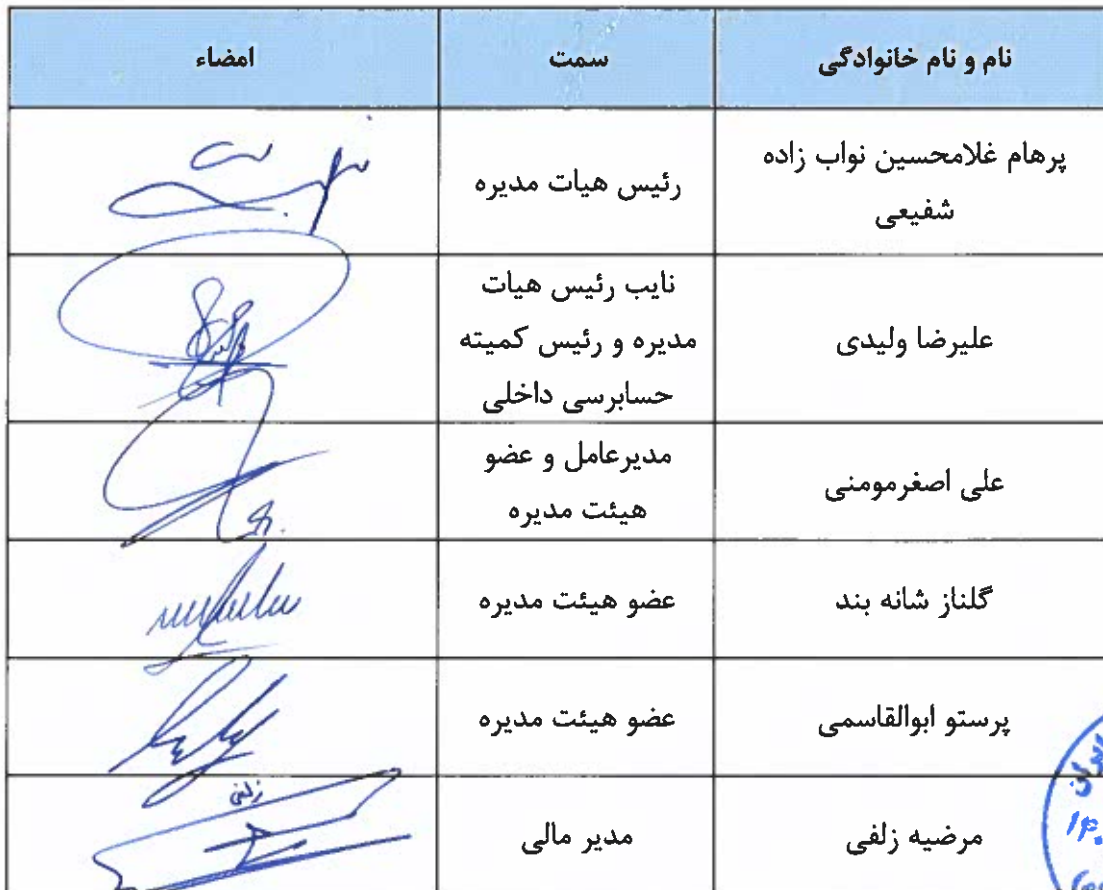 نام و نام خانوادگی
سمت
امضاء
پرهام غلامحسین نواب زاده
شفیعی
رئیس هیات مدیره
علیرضا ولیدی
نایب رئیس هیات
مدیره و رئیس کمیته
حسابرسی داخلی
علی اصغرمومنی
مدیرعامل و عضو
هیئت مدیره
گلناز شانه بند
عضو هیئت مدیره
پرستو ابوالقاسمی
عضو هیئت مدیره
مرضیه زلفی
مدیر مالی
زلفی